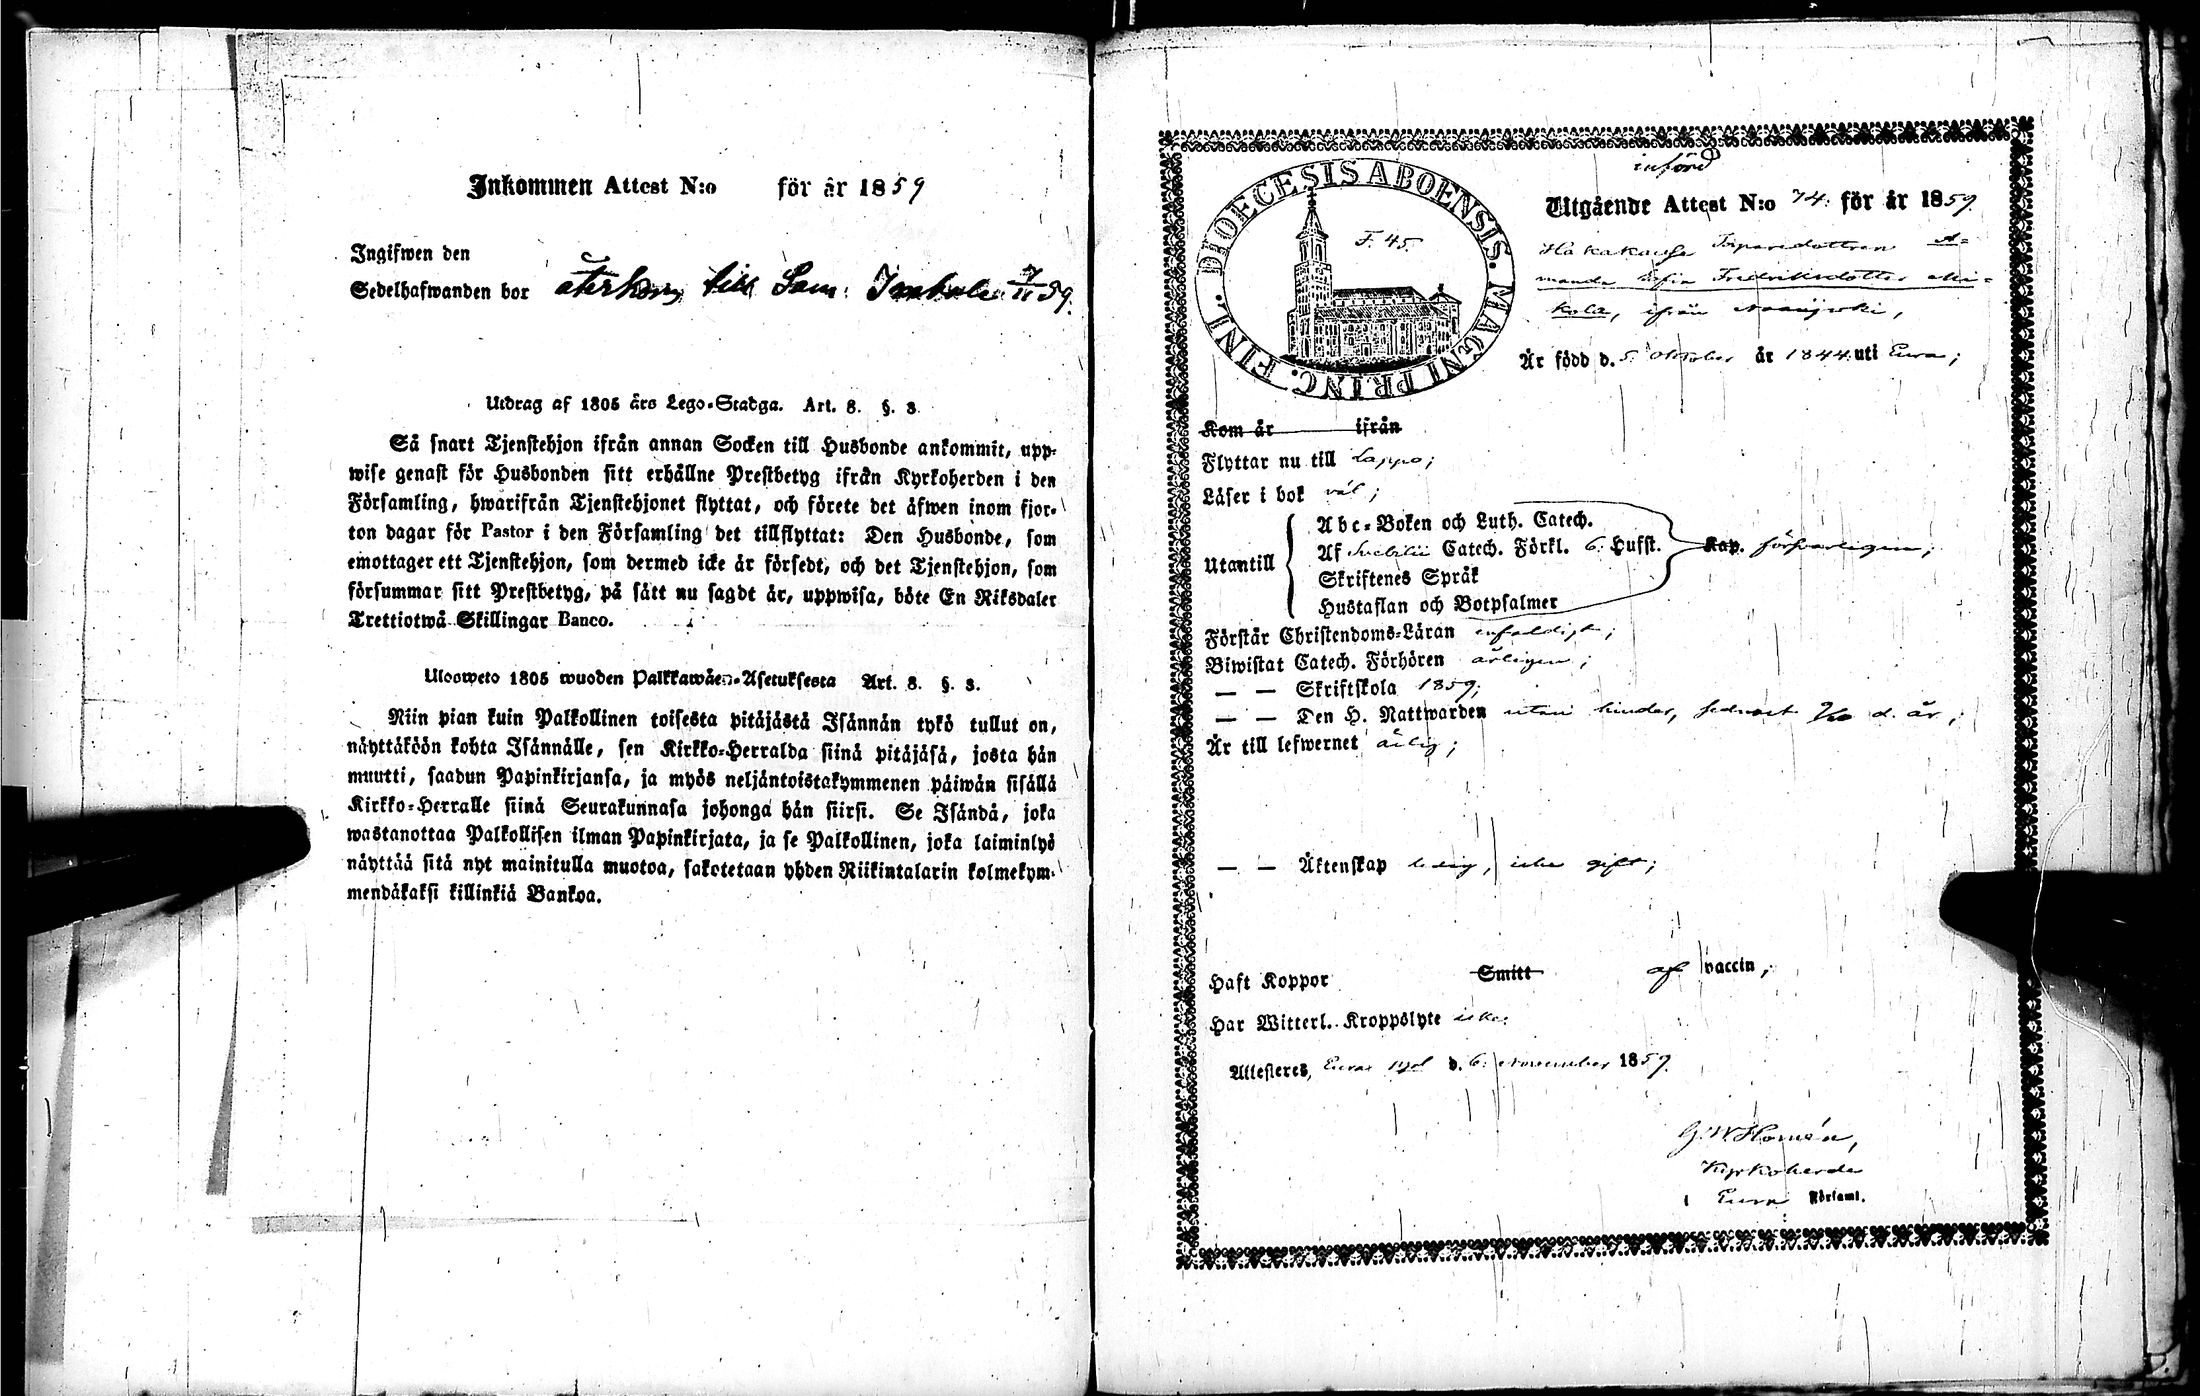 Inkommen Attest N:o för år 1859
Ingifwen den
Sedelhafwanden bor återkom till Sam: 7/11 59.
Utdrag af 1805 års Lego-Stadga. Art. 8. §. 3.
Så snart Tjenstehjon ifrån annan Socken till Husbonde ankommit, upp-
wise genast för Husbonden sitt erhållne Prestbetyg ifrån Kyrkoherden i den
Församling, hwarifrån Tjenstehjonet flyttat, och förete det äfwen inom fjor-
ton dagar för Pastor i den Församling det tillflyttat: Den Husbonde, som
emottager ett Tjenstehjon, som dermed icke är försedt, och det Tjenstehjon, som
försummar sitt Prestbetyg, på sätt nu sagdt är, uppwisa, böte En Riksdaler
Trettiotwå Skillingar Banco.
Uloosweto 1805 wuoden Palkkawäen-Asetuksesta Art. 8. §. 3.
Niin pian kuin Palkollinen toisesta pitäjästä Isännän tykö tullut on,
näyttäköön kohta Isännälle, sen Kirkko-Herralda siinä pitäjäsä, josta hän
muutti, saadun Papinkirjansa, ja myös neljäntoistakymmenen päiwän sisällä
Kirkko-Herralle siinä Seurakunnasa johonga hän siirsi. Se Isändä, joka
wastanottaa Palkollisen ilman Papinkirjata, ja se Palkollinen, joka laiminlyö
näyttää sitä nyt mainitulla muotoa, sakotetaan yhden Riikintalarin kolmekym-
mendäkaksi killinkiä Bankoa.
införd
DIOECESIS ABOENSIS. MAGNI PRINC. FINL.
F. 45.
Utgående Attest N:o 74. för år 1859.
Torparedottren A-
manda Sofia Fredriksdotter
ifrån
Är född d. 5. Oktober år 1844 uti Eura;
Kom år ifrån
Flyttar nu till Lappo;
Läser i bok väl;
Utantill
Abc-Boken och Luth. Catech.
Af Svebilii Catech. Förkl. 6. Hufst. Kap. försvarligen;
Skriftenes Språk
Hustaflan och Botpsalmer
Förstår Christendoms-Läran enfaldigt;
Biwistat Catech. Förhören årligen;
— — Skriftskola 1859;
— — Den H. Nattwarden utan hinder, sednast d. år;
Är till lefwernet ärlig;
— — Äktenskap ledig, icke gift;
Haft Koppor Smitt af vaccin,
Har Witterl. Kroppslyte icke.
Attesteres, Eura d. 6. November 1859.
G. W. Homén,
Kyrkoherde
i Eura Församl.